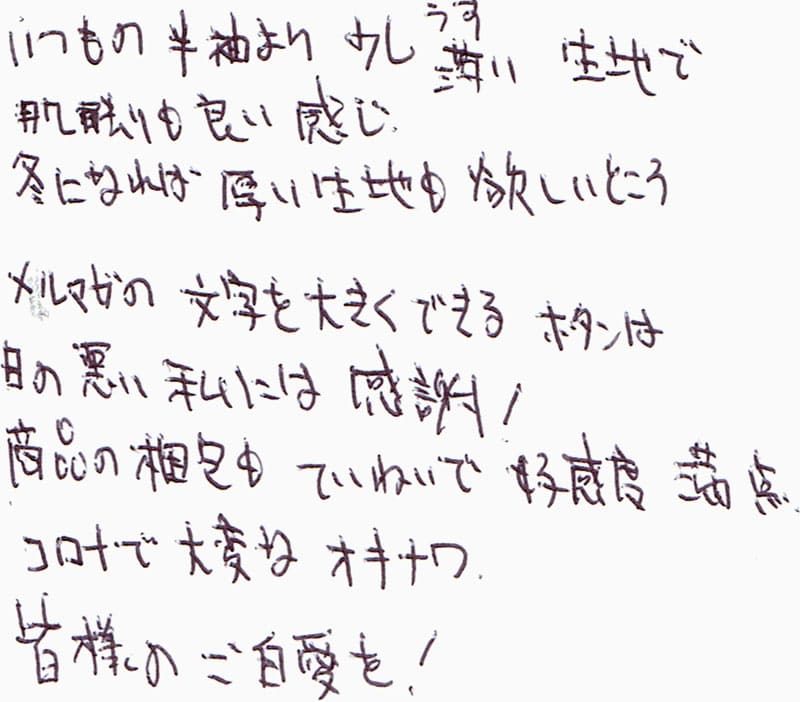 いつもの半袖より少し薄い生地で
うす
肌触りも良い感じ.
冬になれば厚い生地も欲しいところ
メルマガの文字を大きくできるボタンは
目の悪い私には感謝!
商品の梱包もていねいで好感度満点.
コロナで大変なオキナワ.
皆様のご自愛を!